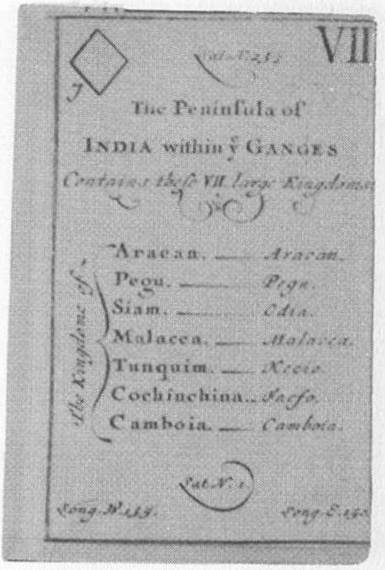 VII
The Peninſula of
INDIA within yͤ GANGES
Contains theſe VII. large Kingdoms
The Kingdome of
Aracan. Aracan.
Pegu. Pegu.
Siam. Odia.
Malacca. Malacca.
Tunquim. Kecio.
Cochinchina. Faifo.
Camboia. Camboia.
Lat. N. 1.
Long. W. Long. E.